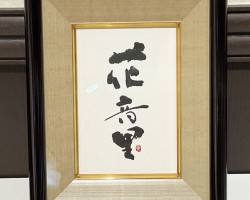 花音里